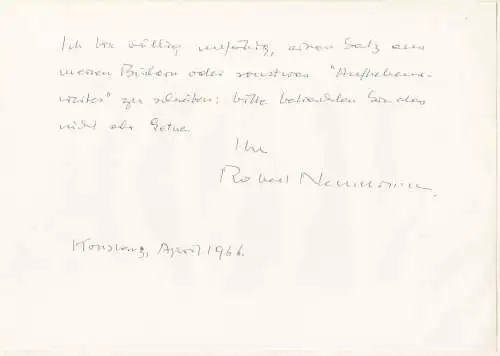 Ich bin völlig unfähig, einen Satz aus
meinen Büchern oder sonstwas "Aufhebens-
wertes" zu schreiben: bitte betrachten Sie das
nicht als
Ihr
Robert Neumann.
Konstanz, April 1966.